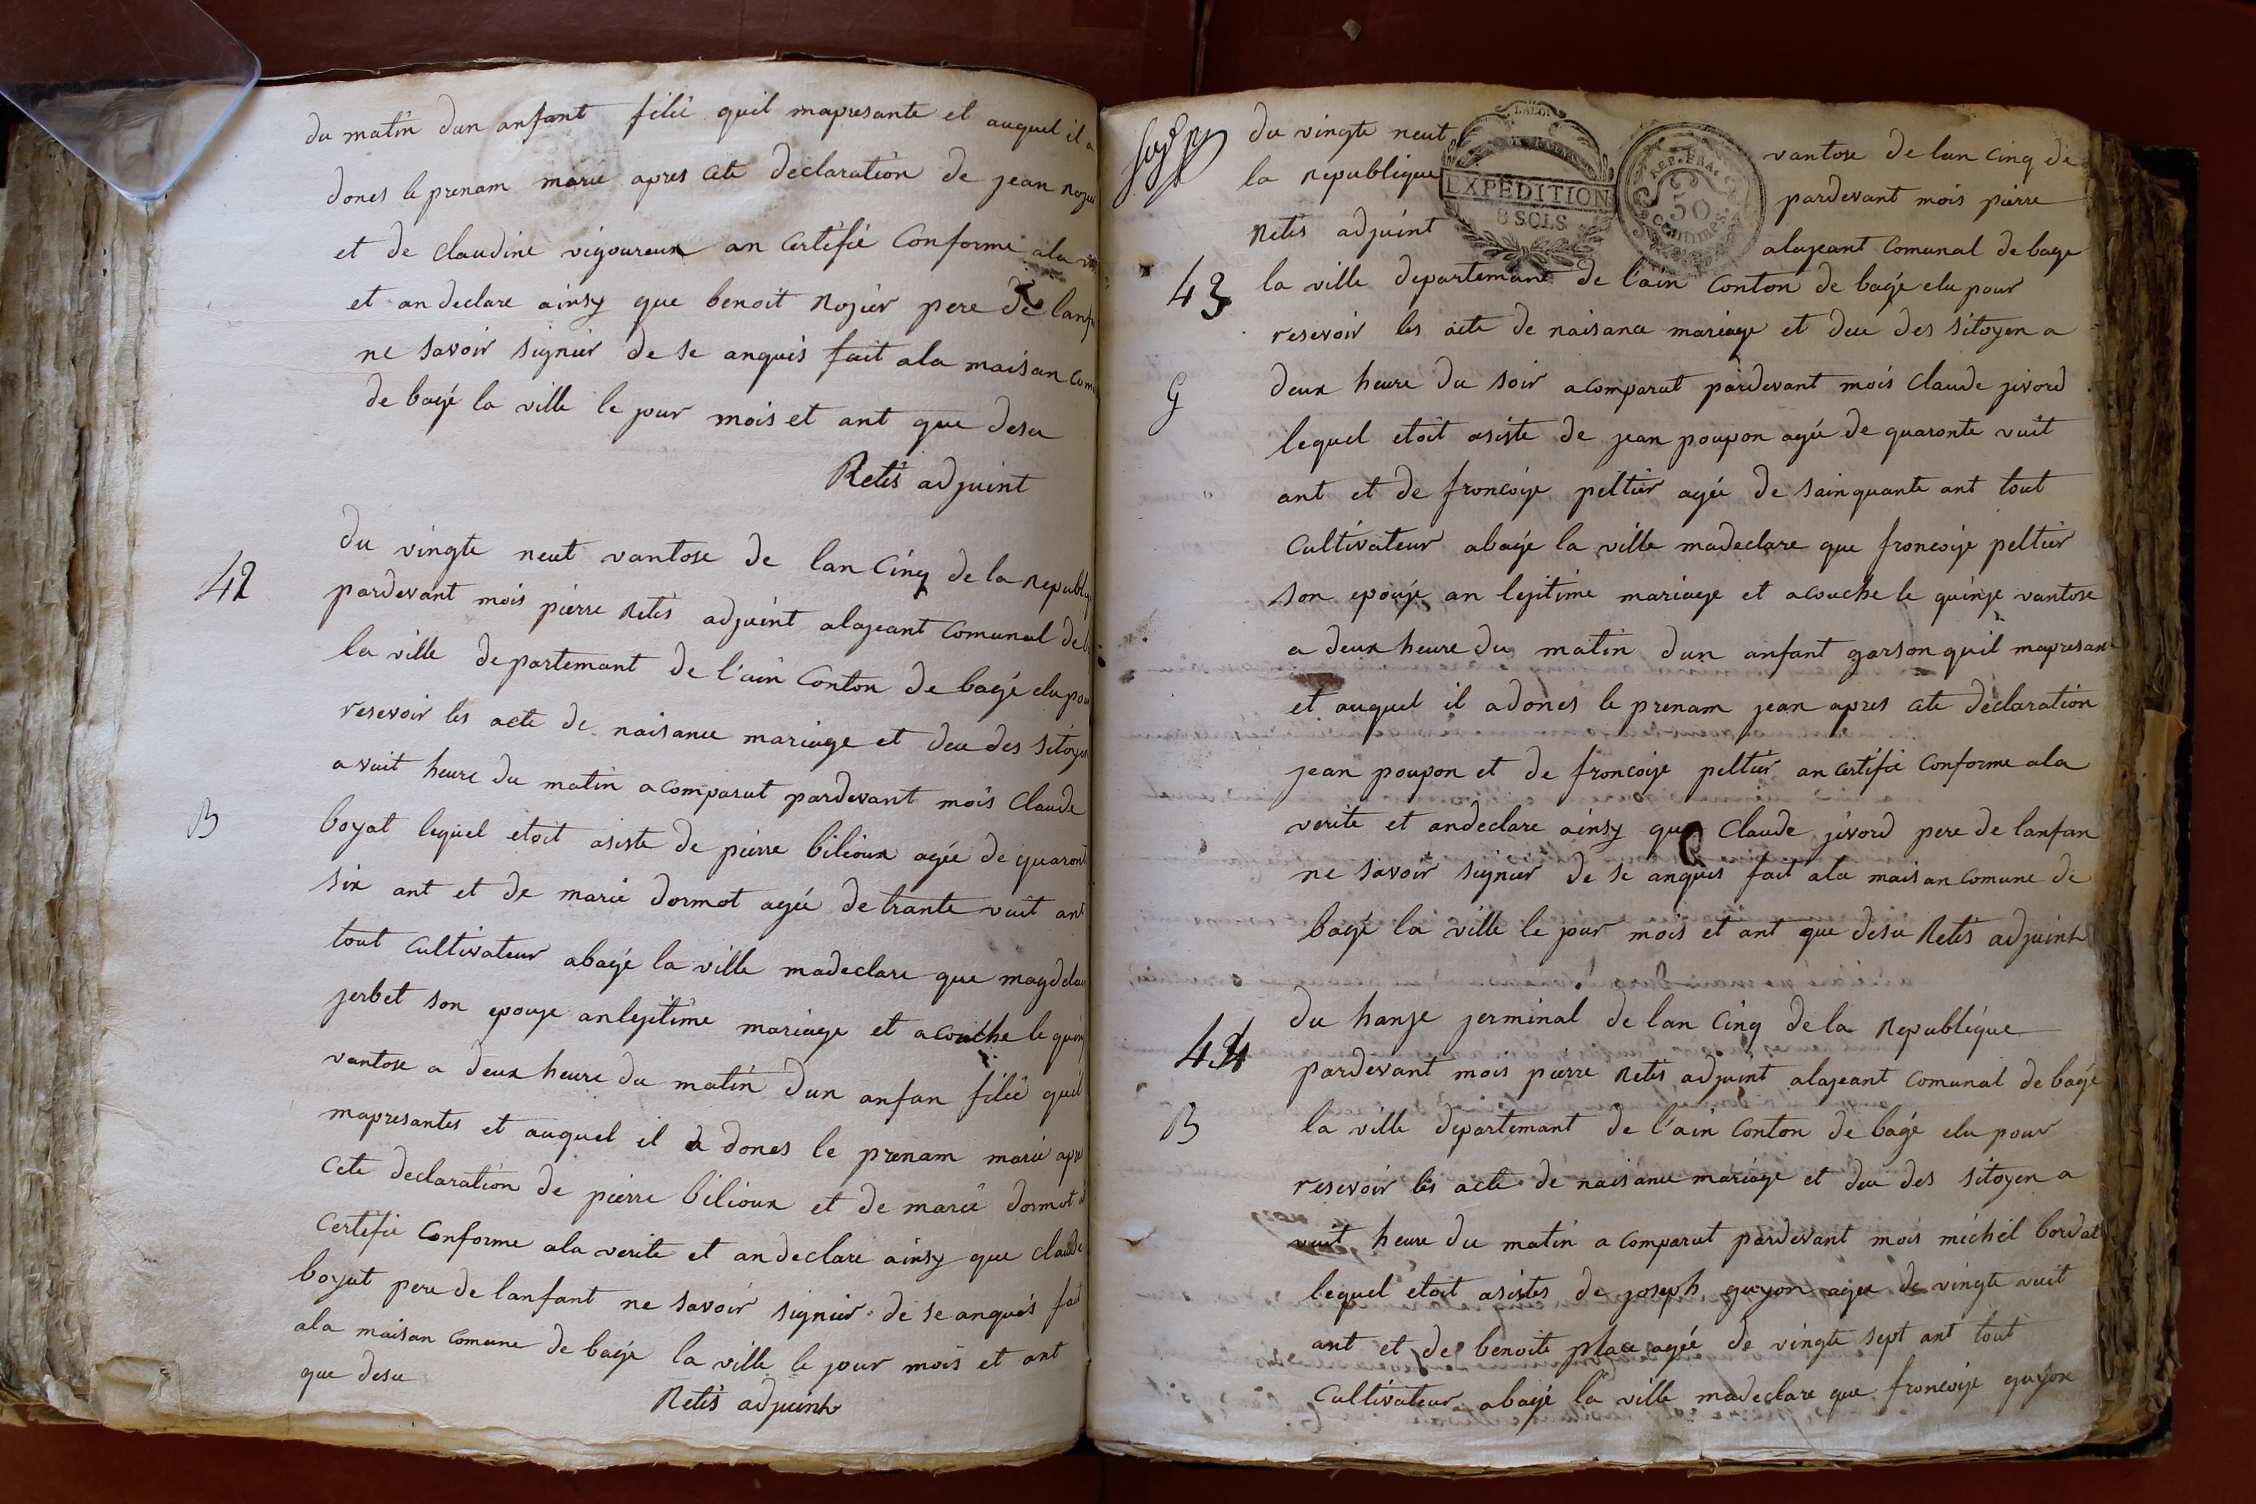 du matin dun anfant filie quil mapresante et auquel il a
dones le prenam marie apres cete declaration de jean
et de claudine vigoureux an certifié Conforme ala
et an declare ainsy que benoit Rojier pere de lanf
ne savoir signier de se anquis fait ala maisan com
de bagé la ville le jour mois et ant que desu
Retis adjuint
42
du vingte neut vantose de lan Cinq de la Republiq
pardevant mois pierre Retis adjuint alajeant Comunal de
la ville departemant de l'ain Conton de bagé elu pou
resevoir les acte de naisance mariage et dece des sitoyen
a vuit heure du matin acomparut pardevant mois Claude
B
boyat lequel etoit asiste de pierre bilioux agée de quaront
six ant et de marie dormot agée de trante vuit ant
tout Cultivateur abagé la ville madeclare que magdela
jerbet son epouje anlejitime mariage et acouche le quinj
vantose a deux heure du matin dun anfan filie quil
mapresantes et auquel il a dones le prenam marie apre
Cete declaration de pierre bilioux et de marie dormot
Certifie Conforme ala verite et an declare ainsy que claude
boyat pere de lanfant ne savoir signier de se anqués fait
ala maisan Comune de bagé la ville le jour mois et ant
que desu
Retis adjuint
du vingte neut vantose de lan Cinq de
la Republique pardevant mois pierre
Retis adjuint alajeant Comunal de bage
EXPÉDITION
8 SOLS
REP. FRA.
50
Centimes
43
la ville departemant de l'ain Conton de bagé elu pour
resevoir les acte de naisance mariage et dece des sitoyen a
G
deux heure du soir acomparut pardevant mois Claude jivord
lequel etoit asiste de jean poupon agée de quaronte vuit
ant et de froncoije peltier agée de sainquante ant tout
Cultivateur abagé la ville madeclare que froncoije peltier
son epouje an lejitime mariage et acouche le quinje vantose
a deux heure du matin dun anfant garson quil mapresan
et auquel il adones le prenam jean apres cete declaration
jean poupon et de froncoije peltier an certifié Conforme ala
verite et andeclare ainsy que Claude jivord pere de lanfan
ne savoir signier de se anquis fait ala maisan Comune de
bagé la ville le jour mois et ant que desu Retis adjuint
44
du hanje jerminal de lan Cinq dela Republique
pardevant mois pierre Retis adjuint alajeant Comunal de bagé
B
la ville departemant de l'ain Conton de bagé elu pour
resevoir les acte de naisance mariage et dece des sitoyen a
vuit heure du matin a comparut pardevant mois méchél bordat
lequel etoit asistes de joseph guyon agée de vingte vuit
ant et de benoite place agée de vingte sept ant tout
Cultivateur abagé la ville madeclare que froncoije guyon